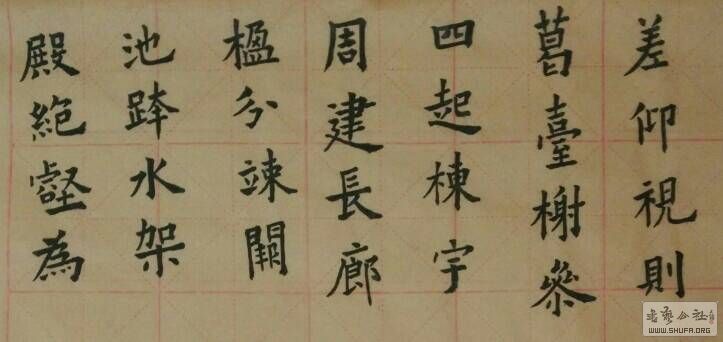 殿絕壑為
池跨水架
楹分竦闕
周建長廊
四起棟宇
葛臺榭參
差仰視則
書藝公社
WWW.SHUFA.ORG